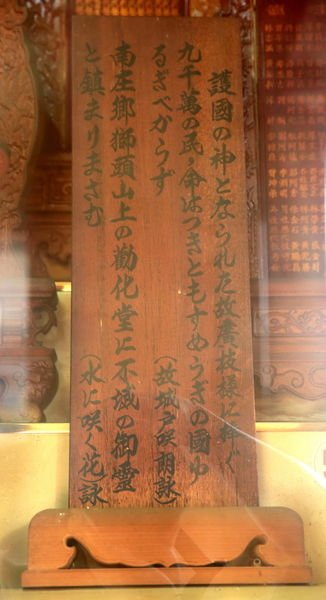 護國の神となられた故廣枝様に捧ぐ
九千萬の民の命はつきともすめらぎの國ゆ
るぎべからず （故城戸咲朔詠）
南庄郷獅頭山上の勸化堂に不滅の御霊
と鎮まりまさむ （水に咲く花）詠